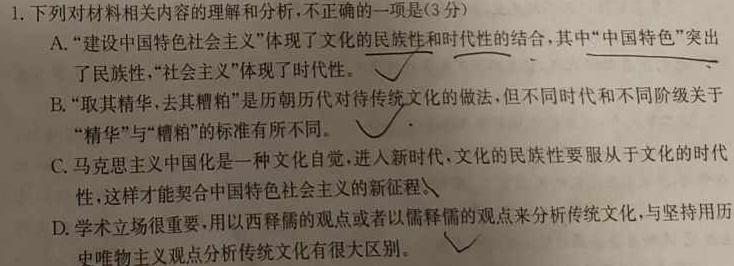 1. 下列对材料相关内容的理解和分析,不正确的一项是(3分)
A. “建设中国特色社会主义”体现了文化的民族性和时代性的结合,其中“中国特色”突出
了民族性,“社会主义”体现了时代性。
B. “取其精华,去其糟粕”是历朝历代对待传统文化的做法,但不同时代和不同阶级关于
“精华”与“糟粕”的标准有所不同。
C. 马克思主义中国化是一种文化自觉,进入新时代,文化的民族性要服从于文化的时代
性,这样才能契合中国特色社会主义的新征程。
D. 学术立场很重要,用以西释儒的观点或者以儒释儒的观点来分析传统文化,与坚持用历
史唯物主义观点分析传统文化有很大区别。